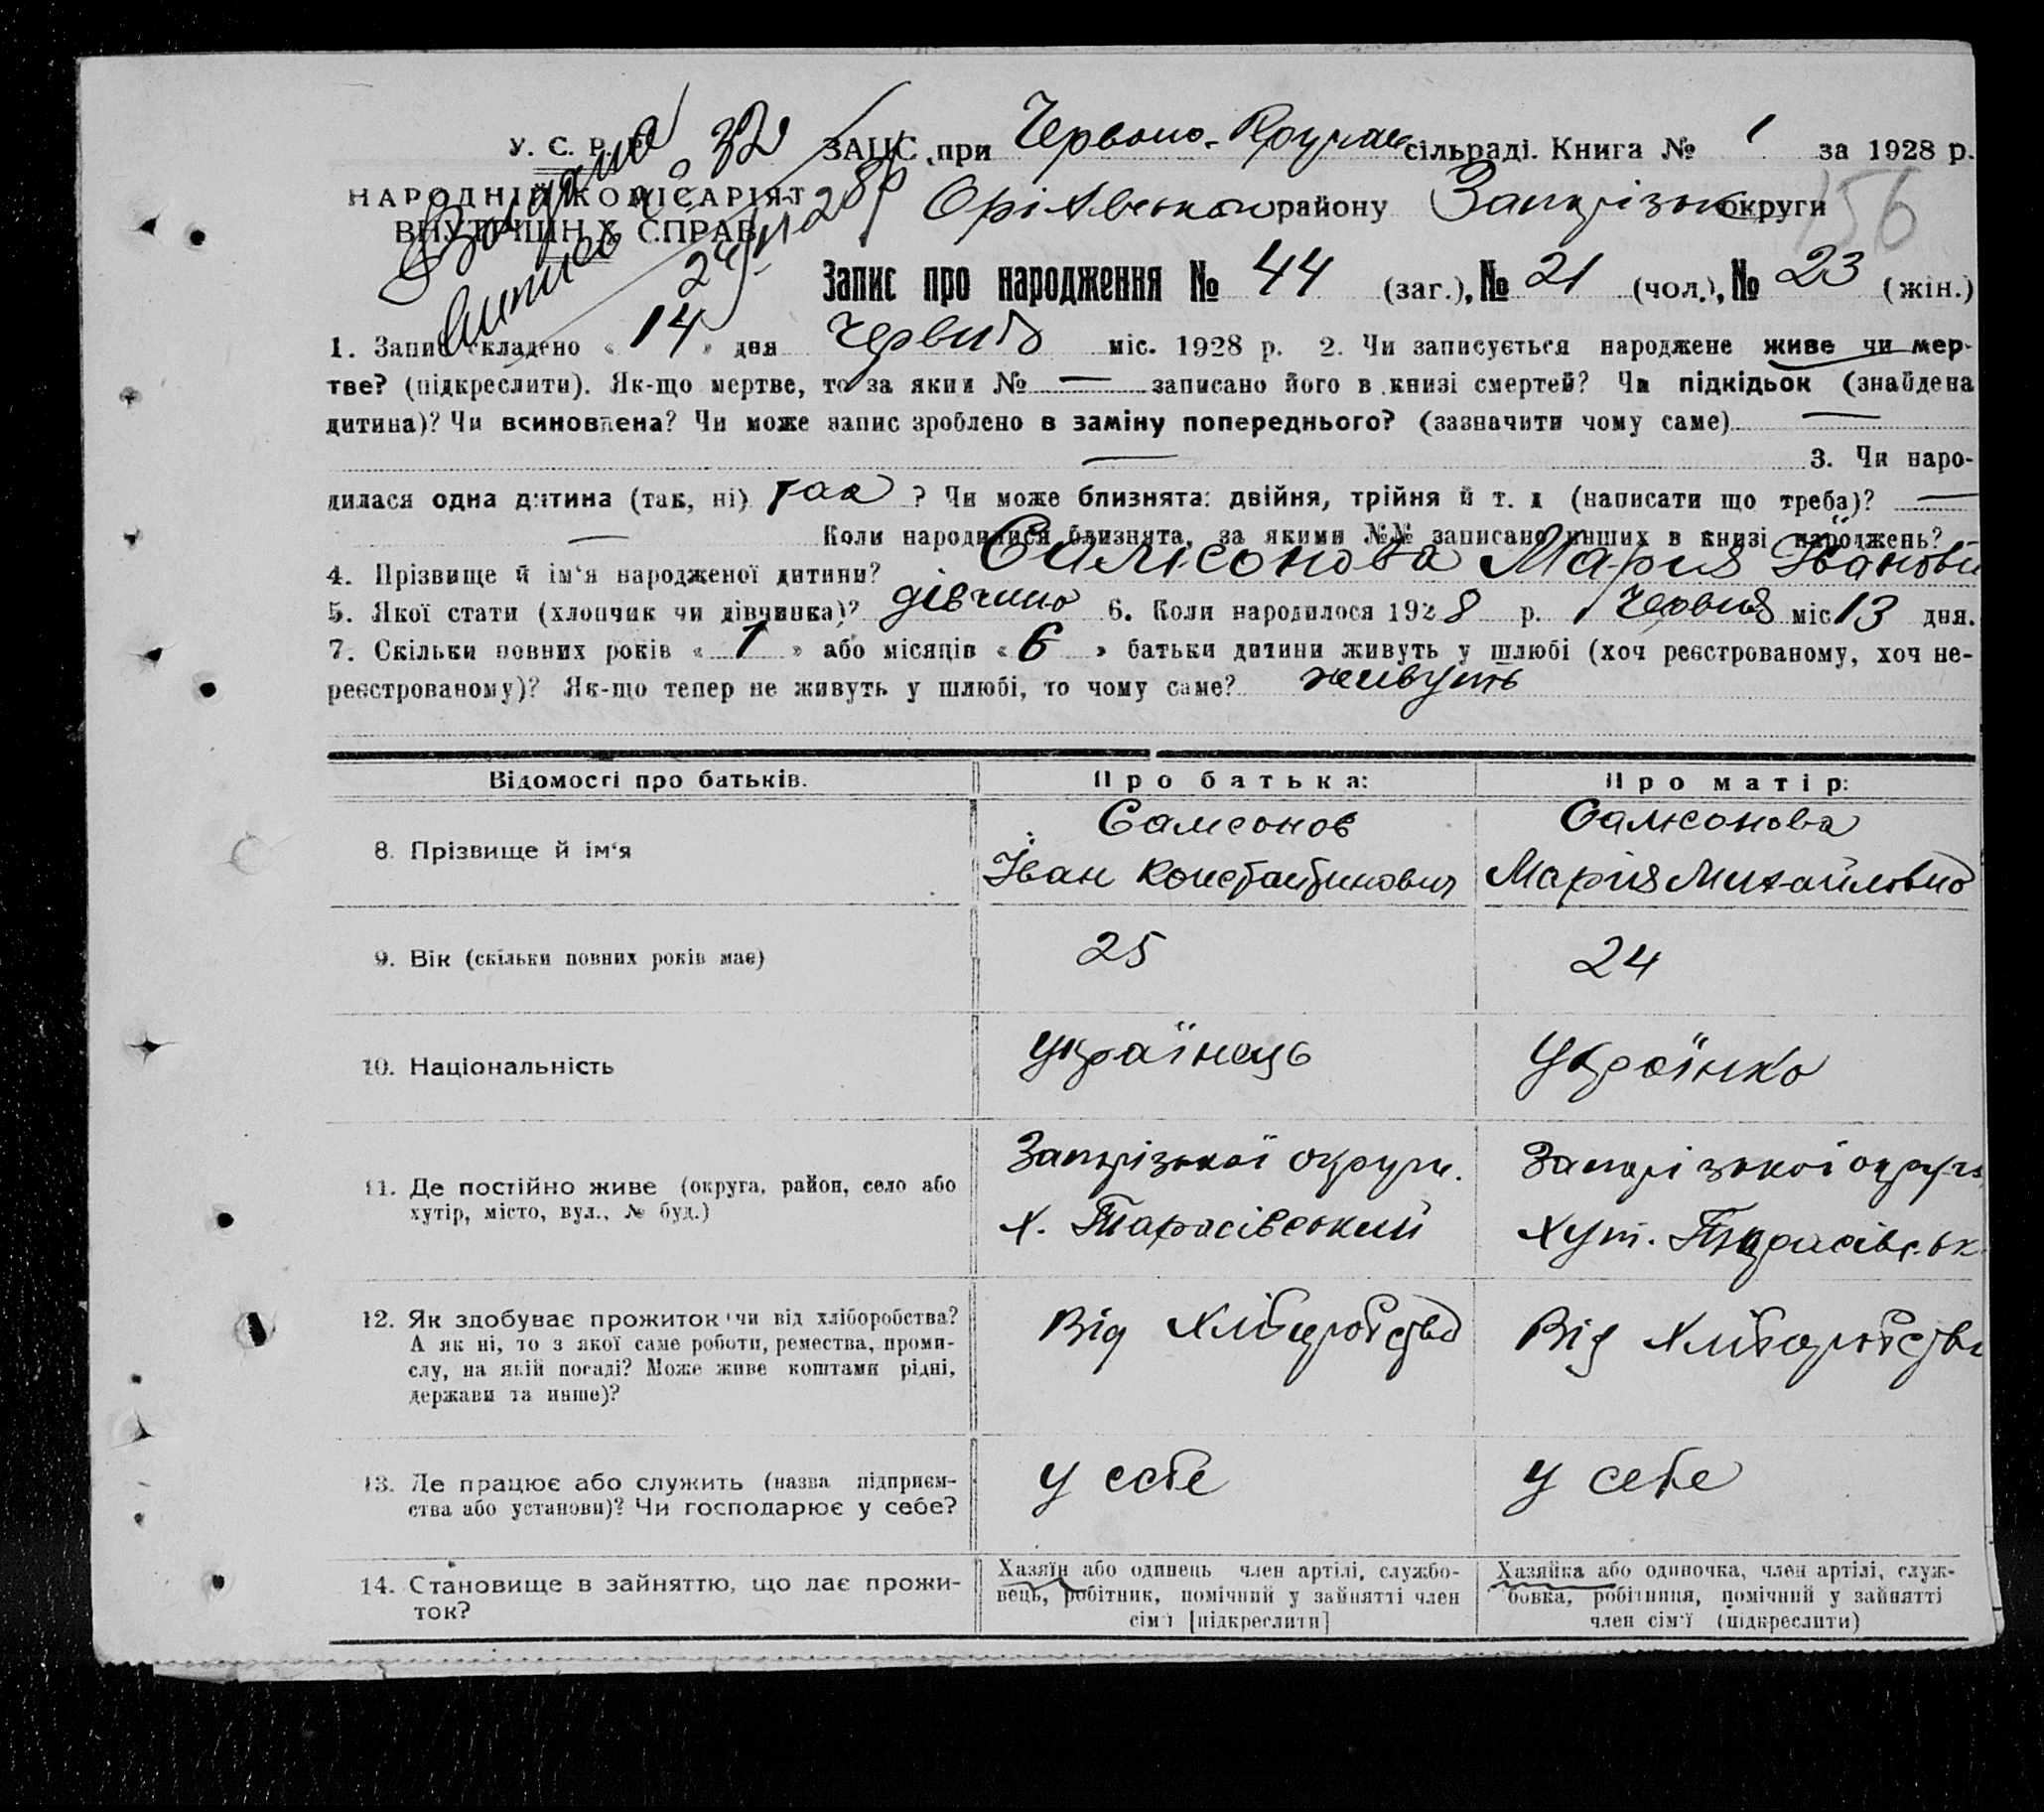 У. С. Р. Р.
НАРОДНІЙ КОМІСАРІЯТ
ВНУТРІШН Х СПРАВ
№ 32
ЗАПІС при Червоно- сільраді. Книга № 1 за 1928 р.
Оріхівського району Запорізької округи
156
Запис про народження № 44 (заг.), № 21 (чол.), № 23 (жін.)
1. Запис складено « 14 » дня Червня міс. 1928 р. 2. Чи записується народжене живе чи мер-
тве? (підкреслити). Як-що мертве, то за яким № — записано його в книзі смертей? Чи підкідьок (знайдена
дитина)? Чи всиновлена? Чи може запис зроблено в заміну попереднього? (зазначити чому саме) —
— 3. Чи наро-
дилася одна дитина (так, ні) так ? Чи може близнята: двійня, трійня й т. д (написати що треба)? —
— Коли народилися близнята, за якими №№ записано инших в книзі народжень?
4. Прізвище й ім‘я народженої дитини? Самсонова Мария Іванови
5. Якої стати (хлопчик чи дівчинка)? дівчина 6. Коли народилося 1928 р. Червня міс 13 дня.
7. Скільки повних років « 1 » або місяців « 6 » батьки дитини живуть у шлюбі (хоч реєстрованому, хоч не-
реєстрованому)? Як-що тепер не живуть у шлюбі, то чому саме? живуть
Відомості про батьків. Про батька: Про матір:
8. Прізвище й ім‘я
Самсонов
Іван Константинович
Самсонова
Мария Михайловна
9. Вік (скільки повних років має) 25 24
10. Національність українець Українка
11. Де постійно живе (округа, район, село або
хутір, місто, вул., № буд.)
Запорізької округи.
х. Тарасівський
Запорізької округи
хут. Тарасівськ
12. Як здобуває прожиток чи від хліборобства?
А як ні, то з якої саме роботи, ремества, проми-
слу, на якій посаді? Може живе коштами рідні,
держави та инше)?
Від хліборобства
Від хліборобства
13. Де працює або служить (назва підприєм-
ства або установи)? Чи господарює у себе?
у себе
у себе
14. Становище в зайняттю, що дає прожи-
ток?
Хазяїн або одинець член артілі, службо-
вець, робітник, помічний у зайнятті член
сім‘ї [підкреслити]
Хазяйка або одиночка, член артілі, служ-
бовка, робітниця, помічний у зайнятті
член сім‘ї (підкреслити)